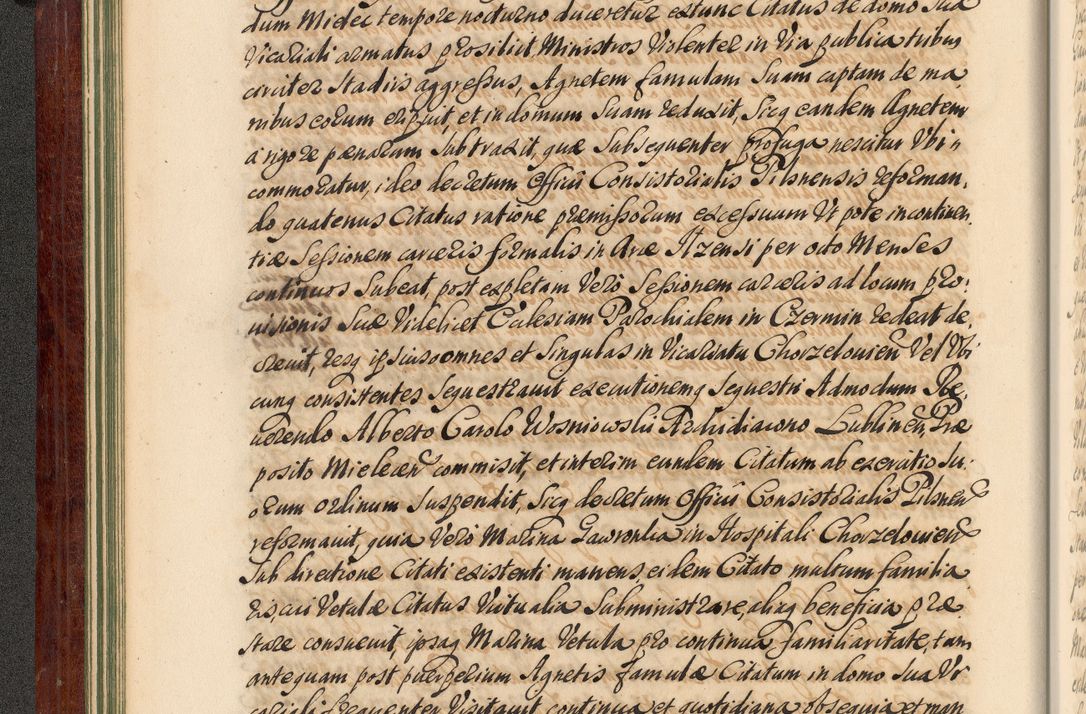 dum Mielec tempore nocturno duceretur extunc Citatus de domo sua
Vicariali armatus prosiliit, Ministros Violenter in Via publica tribus
circiter stadiis aggressus, Agnetem famulam suam captam de ma
nibus eorum eripuit, et in domum suam reduxit, sicq eandem Agnetem
a rigore pænarum subtraxit, quæ subsequenter profuga nescitur Ubi
commoratur, ideo decretum Officii Consistorialis Pilsnensis reforman,
do quatenus Citatus ratione præmissorum excessuum Ut pote incontinen
tiæ Sessionem carceris formalis in Arce Ilzensi per octo Menses
continuos subeat, post expletam Verò Sessionem carceris ad locum pro,
uisionis suæ Videlicet Ecclesiam Parochialem in Czermin redeat de,
creuit, resq ipsius omnes et singulas in Vicariatu Chorzelouien Vel Vbi
cunq consistentes sequestrauit executionemq sequestri Admodum Re,
uerendo Alberto Carolo Wosniowski Archidiacono Lublinen, Præ
posito Mielecen commisit, et interim eundem Citatum ab exercitio su,
orum ordinum suspendit, sicq decretum Officii Consistorialis Pilsnen
reformauit, quia Verò Marina Gawronka in Hospitali Chorzelouien
sub directione Citati existenti manens, eidem Citato multum familia
ris, cui Vetulæ Citatus Victualia subministrare, aliaq beneficia præ
stare consueuit, ipsaq Marina Vetula pro continua familiaritate, tam
antequam post puerperium Agnetis famulæ Citatum in domo sua Vi
cariali frequenter Visitauit continua et quotidiana obsequia et man